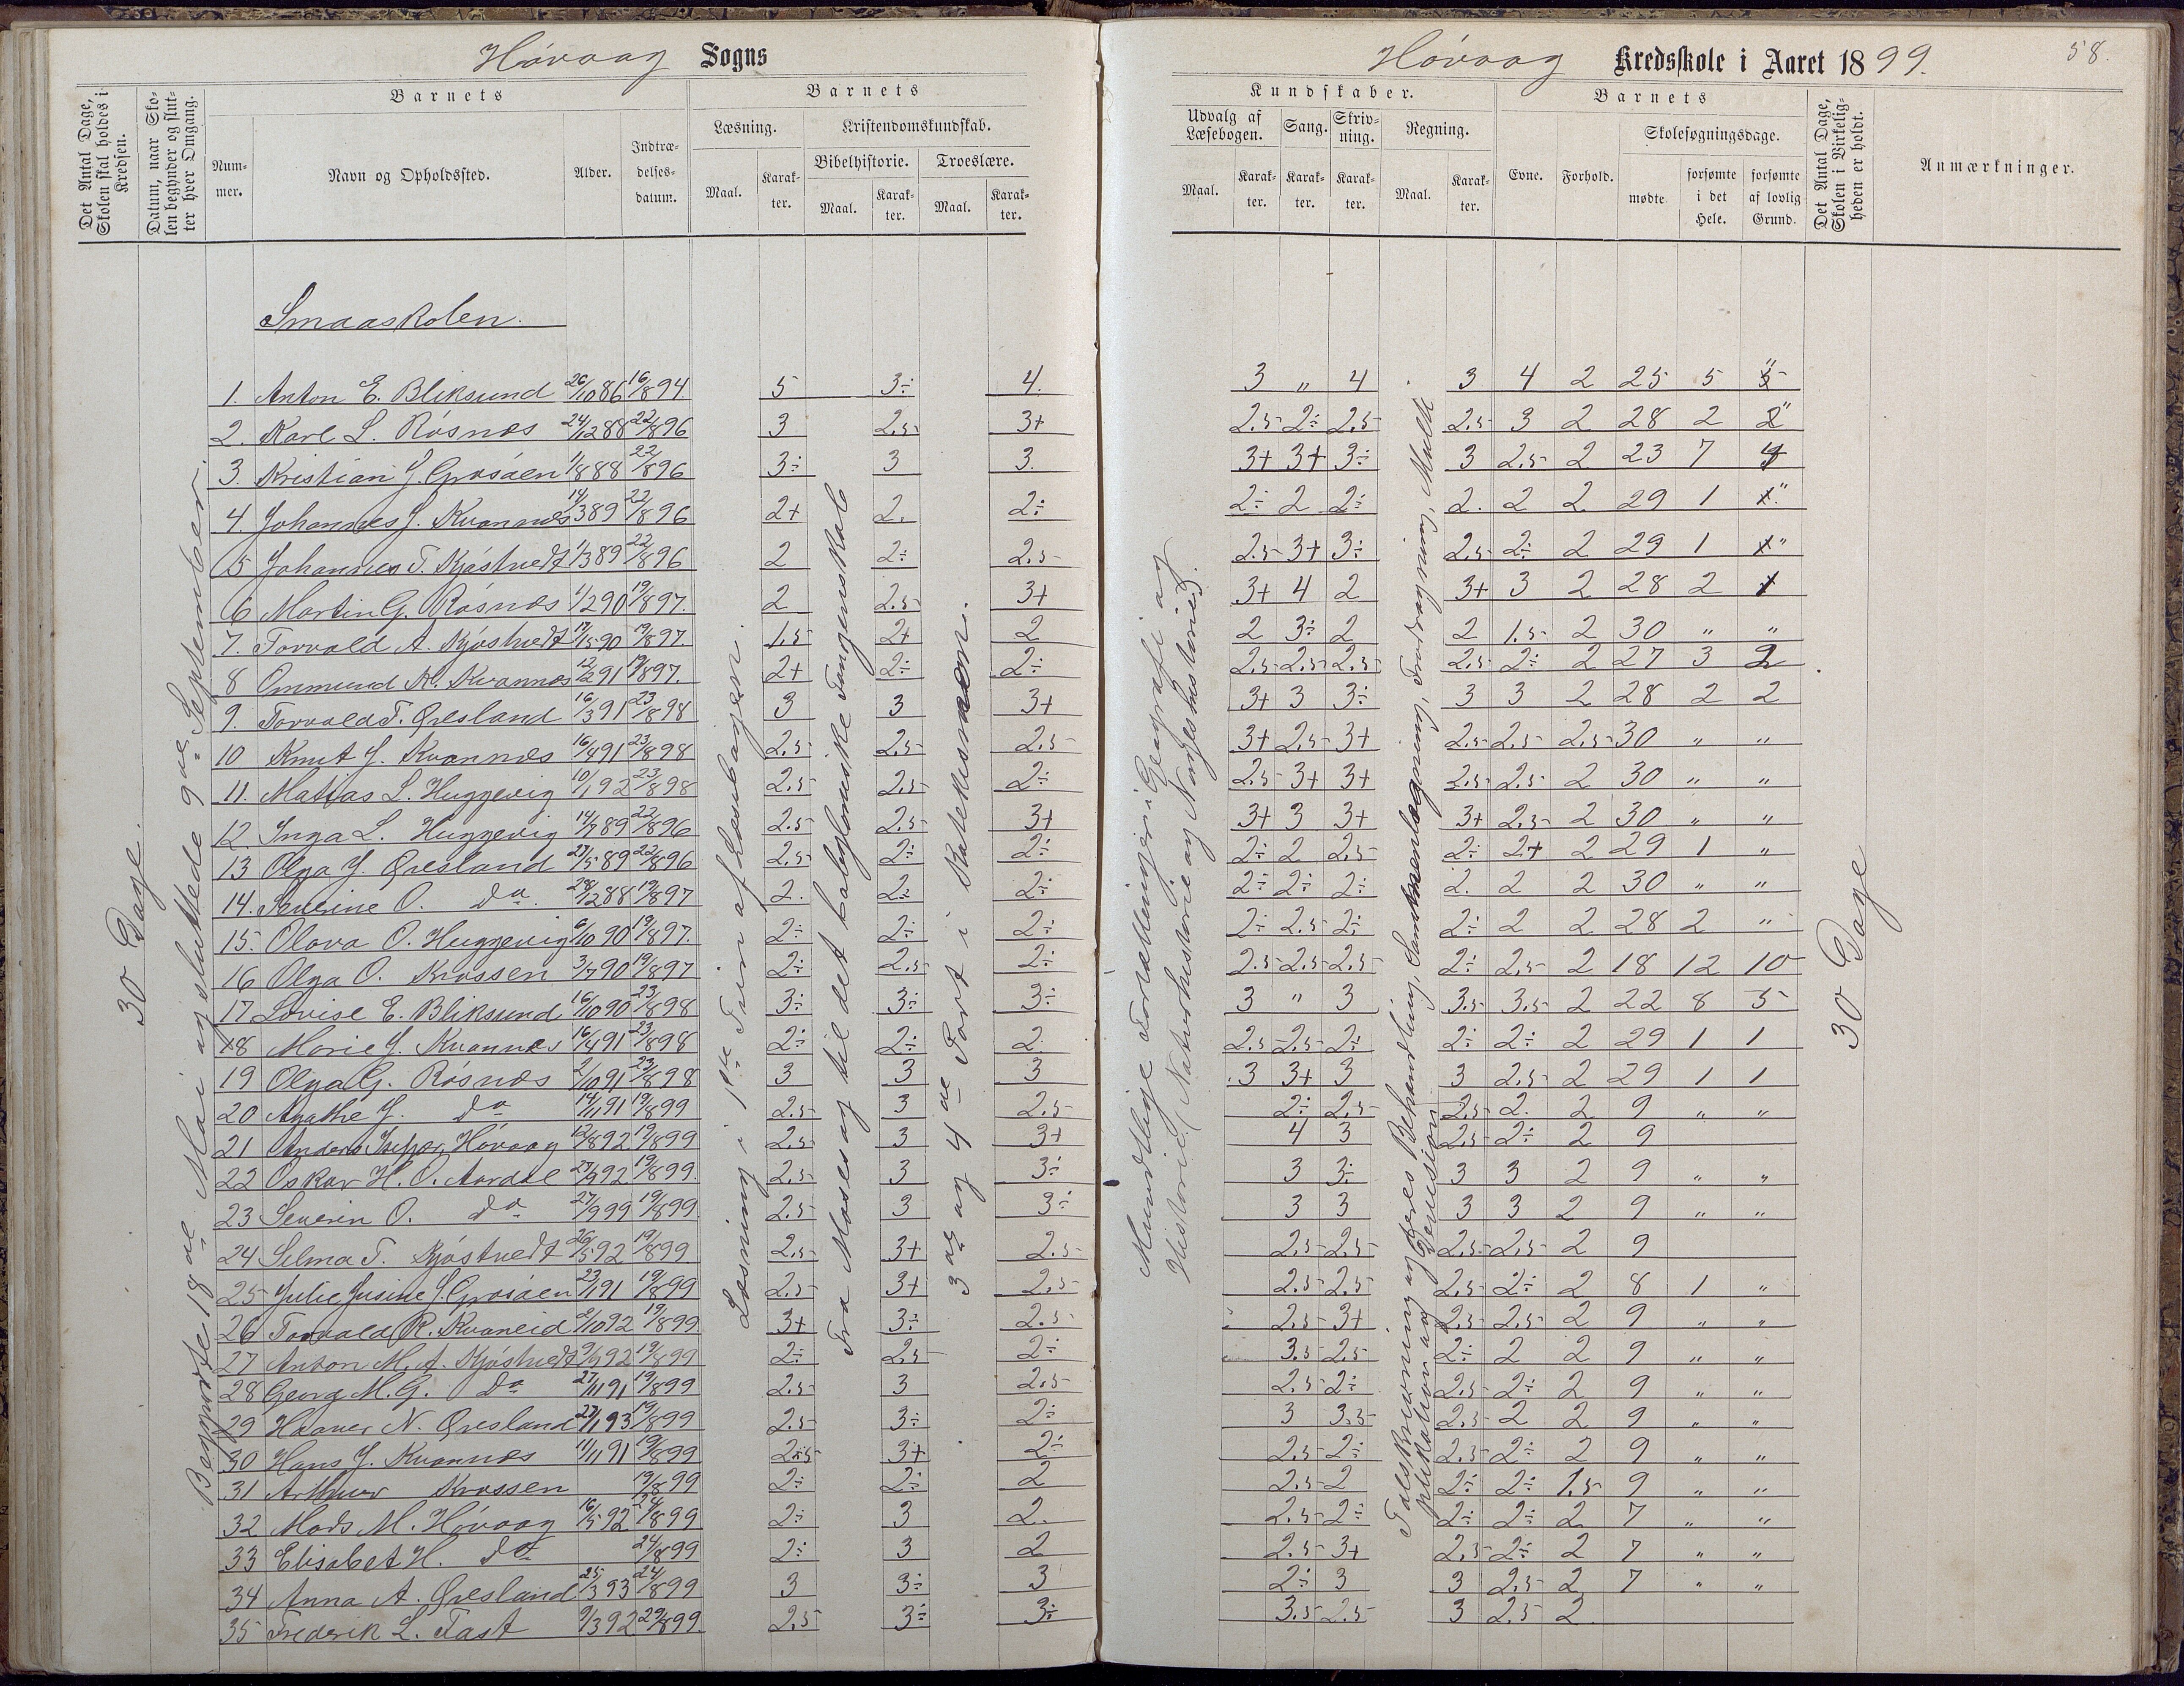 Høvaag Sogns
Det Antal Dage, Skolen skal holdes i Kredsen.
Datum, naar Skolen begynder og slutter hver Omgang.
Barnets
Nummer.
Navn og Opholdssted.
Alder.
Indtrædelsesdatum.
Barnets
Læsning.
Maal.
Karakter.
Kristendomskundskab.
Bibelhistorie.
Maal.
Karakter.
Troeslære.
Maal.
Karakter.
Høvaag Kredsskole i Aaret 1899.
58.
Kundskaber.
Udvalg af Læsebogen.
Maal.
Karakter.
Sang.
Karakter.
Skrivning.
Karakter.
Regning.
Maal.
Karakter.
Barnets
Evne.
Forhold.
Skolesøgningsdage.
mødte
forsømte i det Hele.
forsømte af lovlig Grund.
Det Antal Dage, Skolen i Virkeligheden er holdt.
Anmærkninger.
30 Dage.
Begyndte 18de Mai og sluttede 9de September.
Smaaskolen.
Læsning i 1ste Trin af Læsebogen.
Fra Moses og til det babyloniske Fangenskab
3de og 4de Part i Katekismen.
Mundtlige Fortællinger i Geografi og
Historie. (Naturhistorie og Norgeshistorie).
Talskrivning og deres Behandling, Sammenlægning, Fradragning, Multi
plikation og Division.
30 Dage
1. Anton E. Bliksund 26/10 86 16/8 94. 5 3÷ 4. 3 " 4 3 4 2 25 5 "
2. Karl L. Røsnæs 24/12 88 22/8 96 3 2.5 3+ 2.5 2÷ 2.5 2.5 3 2 28 2 "
3. Kristian J. Grosaen 1/8 88 22/8 96 3÷ 3 3. 3+ 3+ 3÷ 3 2.5 2 23 7 4
4. Johannes J. Kvannes 14/3 89 22/8 96 2+ 2. 2÷ 2÷ 2 2÷ 2. 2 2 29 1 "
5 Johannes T. Kjøstvedt 1/3 89 22/8 96 2 2÷ 2.5 2.5 3+ 3÷ 2.5 2÷ 2 29 1 "
6 Martin G. Røsnæs 1/2 90 19/8 97. 2 2.5 3+ 3+ 4 2 3+ 3 2 28 2 1
7. Torvald A. Kjøstvedt 17/5 90 19/8 97. 1.5 2+ 2 2 3÷ 2 2 1.5 2 30 " "
8 Ommund K. Kvannes 12/2 91 19/8 97. 2+ 2÷ 2÷ 2.5 2.5 2.5 2.5 2÷ 2 27 3 2
9. Torvald T. Øresland 16/3 91 23/8 98 3 3 3+ 3+ 3 3÷ 3 3 2 28 2 2
10 Knut J. Kvannes 16/4 91 23/8 98 2.5 2.5 2.5 3+ 2.5 3+ 2.5 2.5 2.5 30 " "
11. Matias L. Huggevig 10/1 92 23/8 98 2.5 2.5 2÷ 2.5 3+ 3+ 2.5 2.5 2 30 " "
12. Inga L. Huggevig 14/7 89 22/8 96 2.5 2.5 3+ 3+ 3 3+ 3+ 2.5 2 30 " "
13 Olga J. Øresland 27/5 89 22/8 96 2.5 2÷ 2÷ 2÷ 2 2.5 2÷ 2+ 2 29 1 "
14. Severine O. do. 28/12 88 19/8 97 2. 2÷ 2÷ 2÷ 2÷ 2÷ 2. 2 2 30 " "
15. Olava O. Huggevig 6/10 90 19/8 97. 2÷ 2÷ 2÷ 2÷ 2.5 2÷ 2÷ 2 2 28 2 "
16 Olga O. Krossen 3/7 90 19/8 97 2÷ 2.5 2÷ 2.5 2.5 2.5 2÷ 2.5 2 18 12 10
17 Lovise E. Bliksund 16/10 90 23/8 98 3÷ 3÷ 3÷ 3 " 3 3.5 3.5 2 22 8 5
18 Marie J. Kvannes 16/4 91 23/8 98 2÷ 2÷ 2. 2.5 2.5 2÷ 2÷ 2÷ 2 29 1 1
19 Olga G. Røsnæs 2/10 91 23/8 98 3 3 3 3 3+ 3 3 2.5 2 29 1 1
20 Agathe J. do 14/11 91 19/8 99 2.5 3 2.5 2÷ 2.5 2.5 2. 2 9 " "
21 Anders Høvaag 12/8 92 19/8 99 2.5 3 3+ 4 3 2.5 2÷ 2 9
22 Oskar H. O. Aardal 27/9 92 19/8 99. 2.5 3 3÷ 3 3÷ 3 3 2 9 " "
23 Severin O. do 27/9 99 19/8 99 2.5 3 3÷ 3 3 3 3 2 9 " "
24 Selma T. Kjøstvedt 26/5 92 19/8 99. 2.5 3+ 2.5 2.5 2.5 2.5 2.5 2 9
25 Julie Jusine J. Grosaen 23/1 91 19/8 99 2.5 3+ 2.5 2.5 2.5 2.5 2÷ 2 8 1 "
26 Torvald R. Kvaneid 2/10 92 19/8 99. 3+ 3÷ 2.5 2.5 3+ 2.5 2.5 2 9 " "
27 Anton M. A. Kjøstvedt 9/9 92 19/8 99 2÷ 2.5 2÷ 3.5 2.5 2÷ 2 2 9 " "
28 Georg M. G. do 27/11 91 19/8 99 2.5 3 2.5 2.5 2÷ 2.5 2÷ 2 9 " "
29 N. Øresland 27/1 93 19/8 99 2.5 3÷ 2÷ 3 3.5 2.5 2 2 9 " "
30 Hans J. Kvannes 11/11 91 19/8 99 2.5 3+ 2÷ 2.5 2÷ 2.5 2÷ 2 9 " "
31 Arthur Krossen 19/8 99 2÷ 2÷ 2 2.5 2 2÷ 2÷ 1.5 9 " "
32 Mads M. Høvaag 16/5 92 24/8 99 2÷ 3 2. 2.5 2÷ 2÷ 2÷ 2 7 " "
33 Elisabet H. do 24/8 99 2÷ 3 2 2.5 3+ 2.5 2÷ 2 7 " "
34 Anna A. Øresland 25/3 93 24/8 99 3 3÷ 3 2÷ 3 3 2.5 2 7 " "
35 Frederik L. Tast 9/3 92 29/8 99. 2.5 3÷ 3÷ 3.5 2.5 3 2.5 2